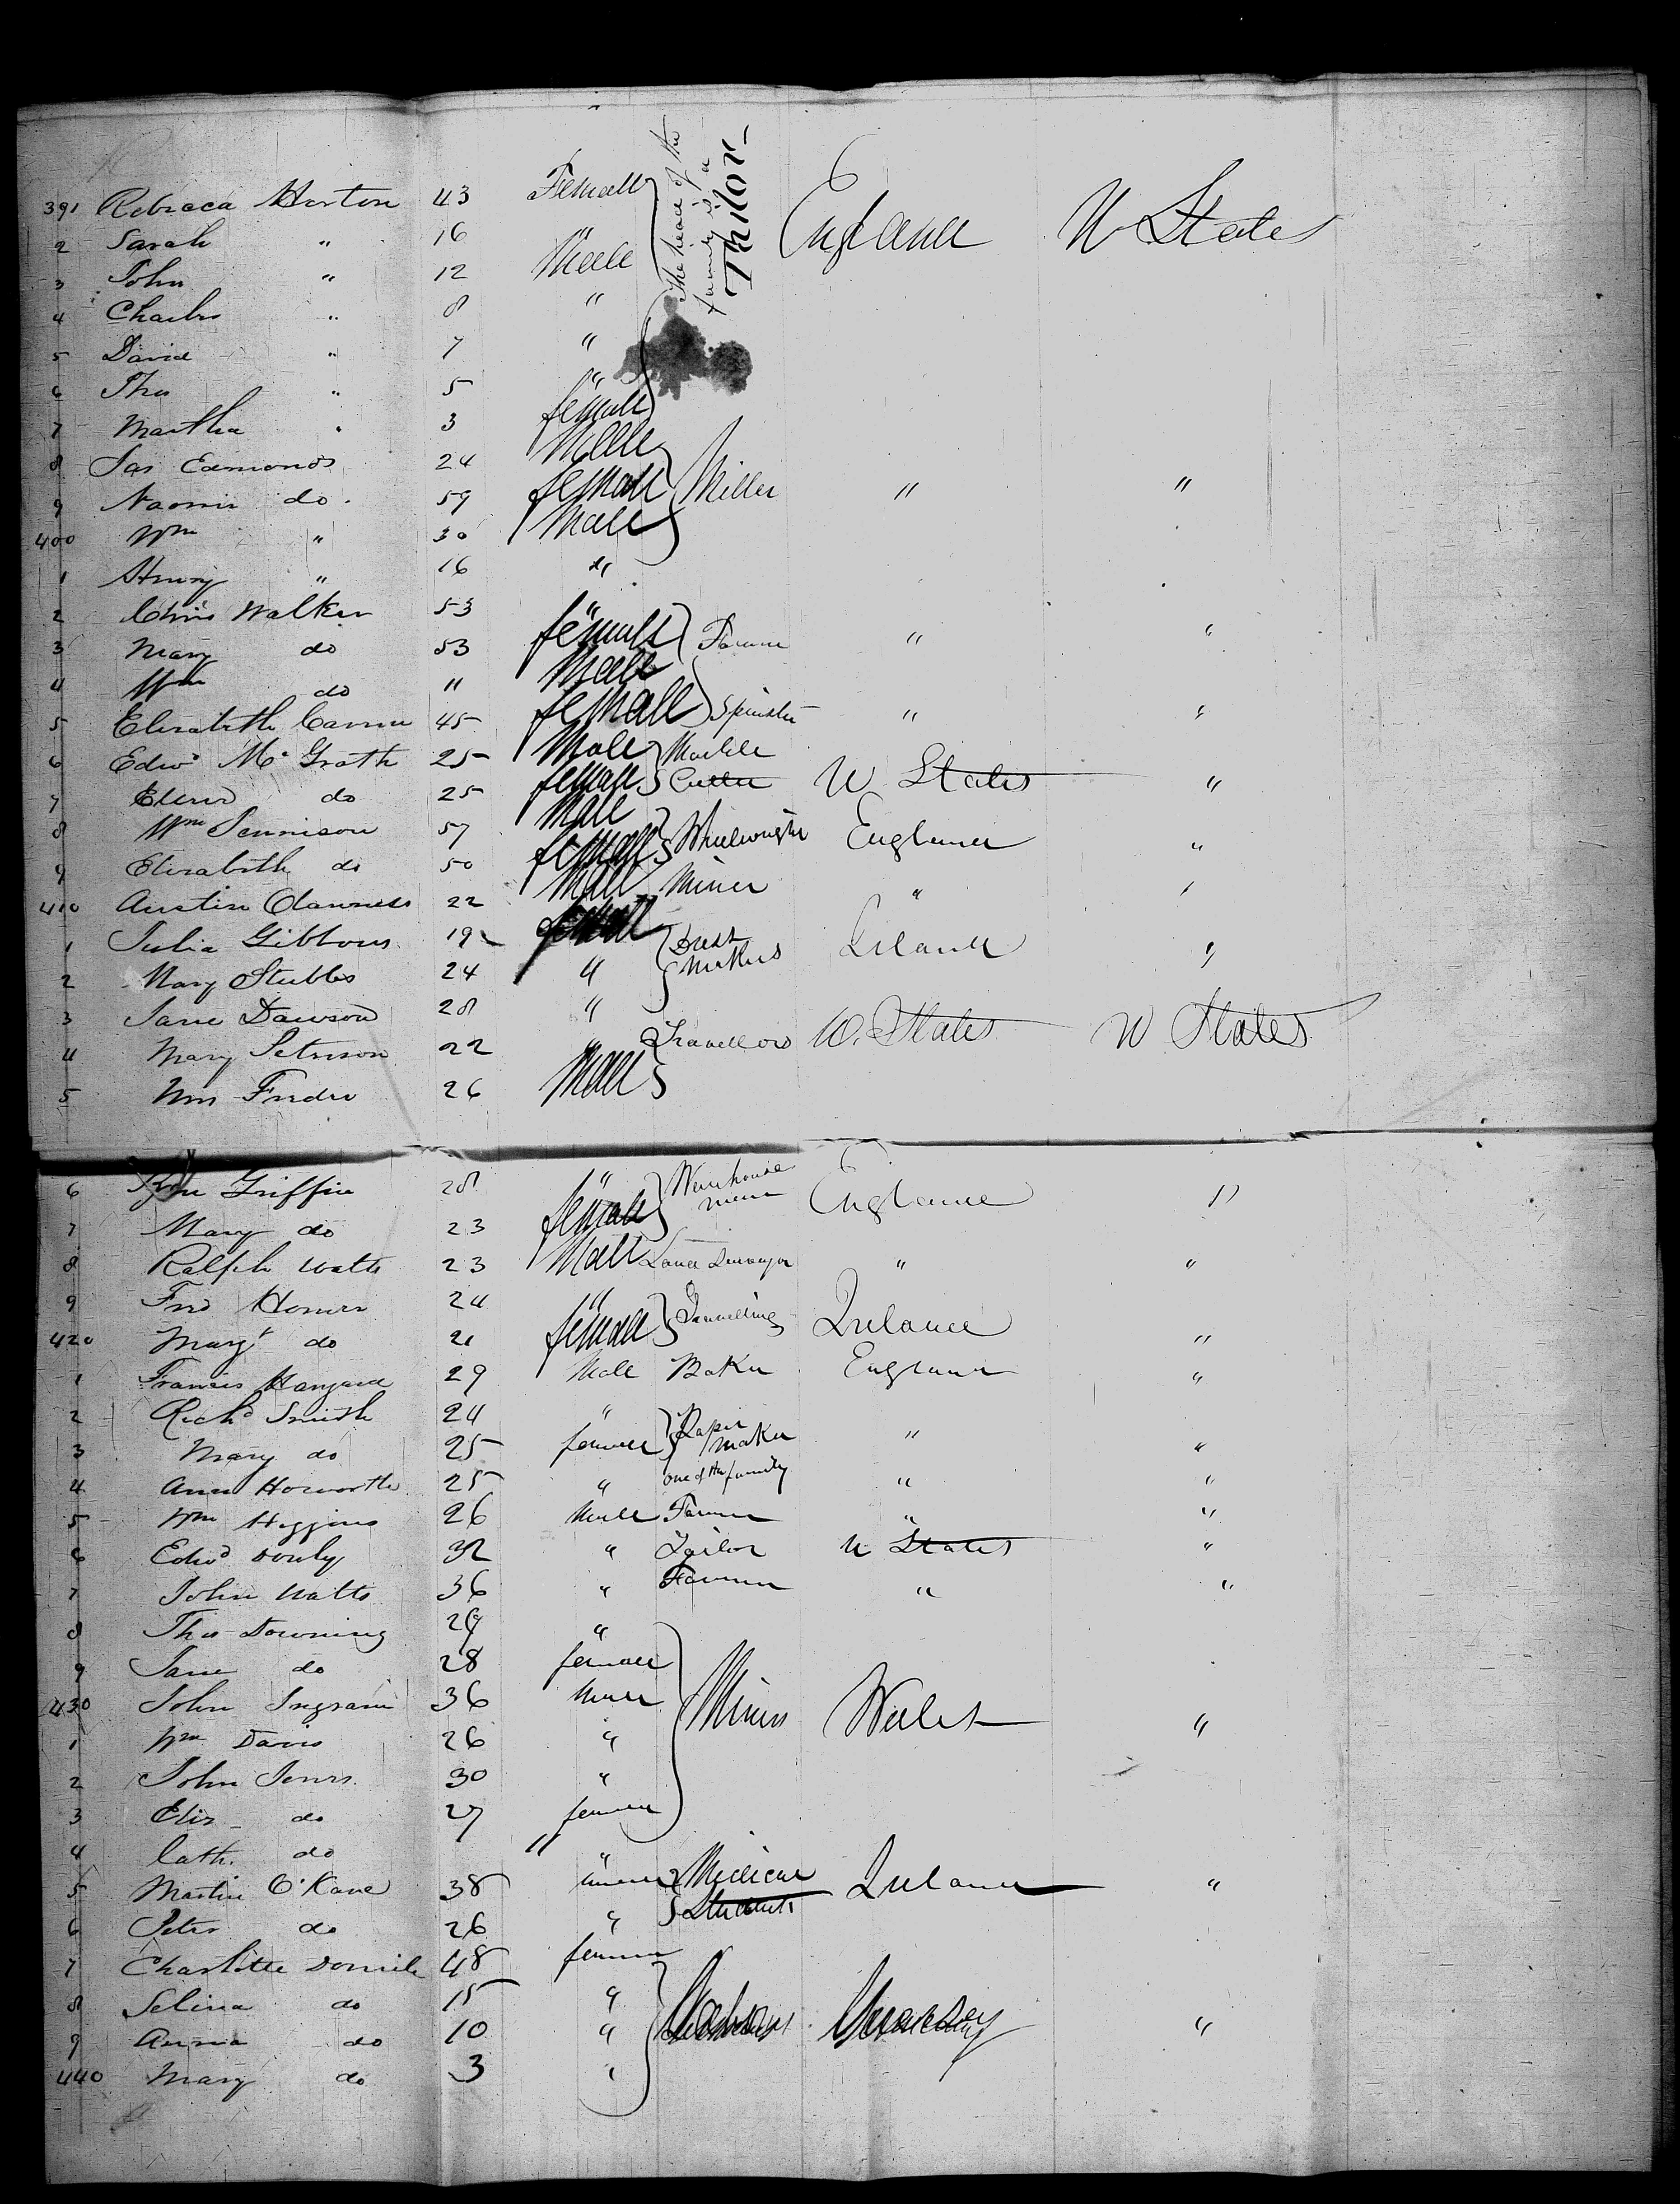 391 Rebraca Horton 43 Female The head of the family is a Tailor England U States
2 Sarah " 16 "
3 John " 12 Male
4 Charles " 8 "
5 David " 7 "
6 Thos " 5 "
7 Martha " 3 female
8 Jas Edmonds 24 Male
9 Naomi do 59 female Miller " "
400 Wm " 30 Male
1 Henry " 16 "
2 Chris Walker 53 "
3 Mary do 53 female Farmer " "
4 Wm do 11 Male
5 Elizabeth 45 female Spinster " "
6 Edwd Mc Grath 25 Male Marble
7 do 25 female Cutter U States "
8 Wm Jennison 57 Male
9 Elizabeth do 50 female Wheelwright England "
410 Austin 22 Male Miner " "
1 Julia Gibbons 19 female Dress Ireland "
2 Mary Stubbs 24 " Makers
3 Jane Dawson 28 "
4 Mary Peterson 22 " Travellors U. States U States
5 Wm 26 Male
6 Griffin 28 " Warehouse
7 Mary do 23 female man England "
8 Ralph Watts 23 Male Land Surveyor " "
9 24 "
420 Margt do 21 female Travelling Ireland "
1 Francis 29 Male Baker England "
2 Richd Smith 24 " Paper
3 Mary do 25 female maker " "
4 Ann Howorth 25 " one of the family " "
5 Wm Higgins 26 Male Farmer " "
6 Edwd 32 " Tailor U States "
7 John Watts 36 " Farmer " "
8 Thos Downing 29 "
9 Jane do 28 female
430 John Ingram 36 Male Miners Wales "
1 Wm Davis 26 "
2 John Jones 30 "
3 Eliz do 27 female
4 Cath. do 11 "
5 Martin O'Kane 38 Medical Ireland "
6 Peter do 26 " Students
7 Charlotte 48 female
8 Selina do 15 "
9 Annia do 10 " "
440 Mary do 3 "